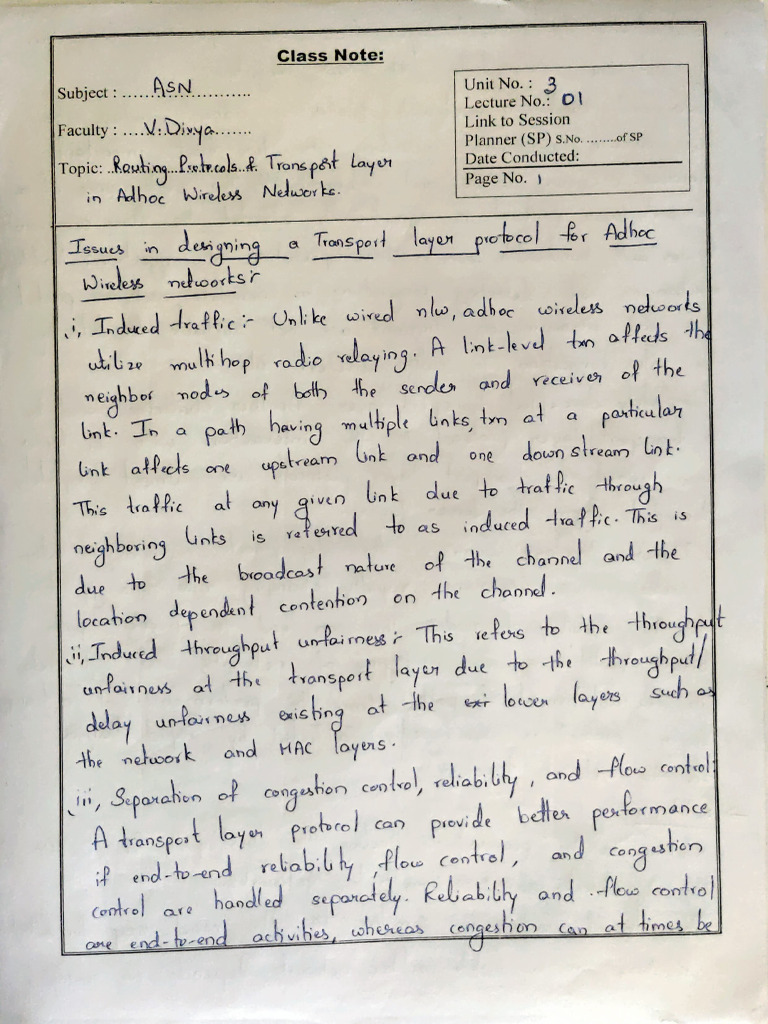 Class Note:
Subject : ......ASN............
Faculty : ....V.Divya.......
Topic: ..Routing...Protocols..&. Transport Layer
in Adhoc Wireless Networks.
Unit No. : 3
Lecture No.: 01
Link to Session
Planner (SP) S.No. ........of SP
Date Conducted:
Page No. 1
Issues in designing a Transport layer protocol for Adhoc
Wireless networks:-
i, Induced traffic:- Unlike wired n/w, adhoc wireless networks
utilize multihop radio relaying. A link-level txn affects the
neighbor nodes of both the sender and receiver of the
link. In a path having multiple links, txn at a particular
link affects one upstream link and one down stream link.
This traffic at any given link due to traffic through
neighboring links is referred to as induced traffic. This is
due to the broadcast nature of the channel and the
location dependent contention on the channel.
ii, Induced throughput unfairness:- This refers to the throughput
unfairness at the transport layer due to the throughput/
delay unfairness existing at the lower layers such as
the network and MAC layers.
iii, Separation of congestion control, reliability, and flow control:
A transport layer protocol can provide better performance
if end-to-end reliability, flow control, and congestion
control are handled separately. Reliability and flow control
are end-to-end activities, whereas congestion can at times be